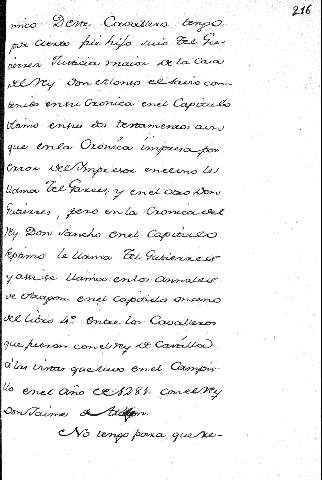 216
mico Deste Cavallero tengo
por cierto fue hijo suio Tel Gu-
tierrez Justicia maior de la Casa
del Rey Don Alonso el savio con-
tenido en su Cronica en el Capitulo
ultimo en sus dos testamentos aun
que en la Cronica impresa por
error del Impresor en el uno le
llama Tel Garces, y en el otro Don
Gutierres, pero en la Cronica del
Rey Don Sancho en el Capitulo
septimo le llama Tel Gutierres
y assi se llama en los Annales
de Aragon en el capitulo onceno
del libro 4º entre los Cavalleros
que fueron con el Rey de Castilla
á las vistas que tuvo en el Campi-
llo en el año de 1281 con el Rey
Don Jaime de
No tengo para que re-